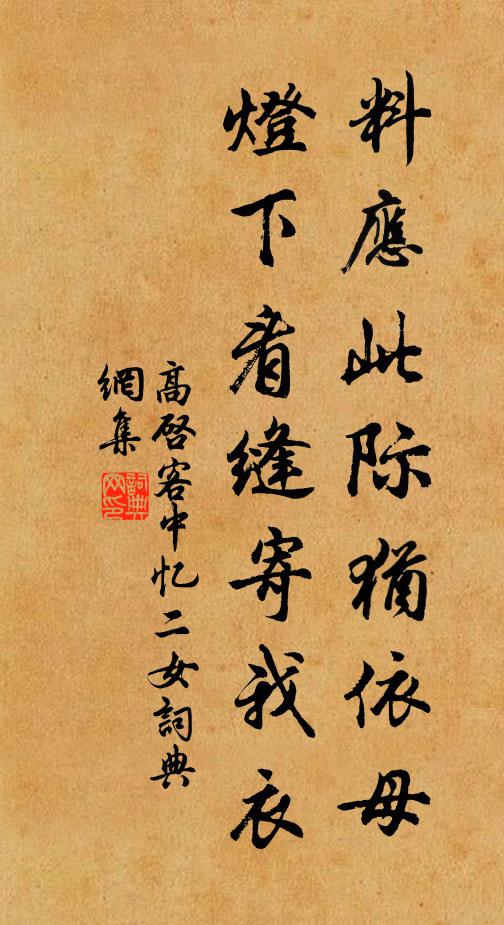 料應此际猶依母
燈下看縫寄我衣
高啓客中忆二女詞典
網集
詞典
网印